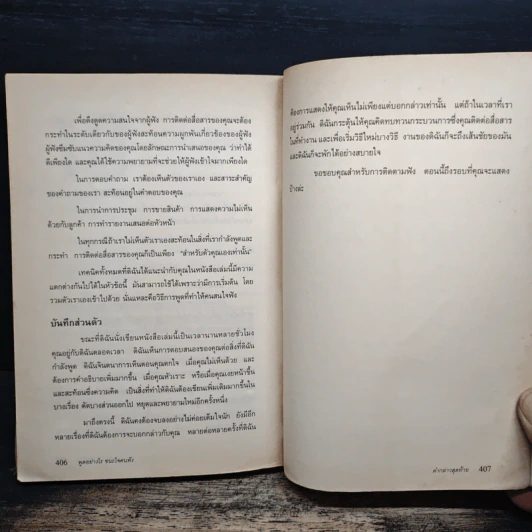 เพื่อดึงดูดความสนใจจากผู้ฟัง การติดต่อสื่อสารของคุณจะต้อง
กระทำในระดับเดียวกับของผู้ฟังสะท้อนความผูกพันเกี่ยวข้องของผู้ฟัง
ผู้ฟังซึมซับแนวความคิดของคุณโดยลักษณะการนำเสนอของคุณ ว่าทำได้
ดีเพียงใด และคุณได้ใช้ความพยายามที่จะช่วยให้ผู้ฟังเข้าใจมากเพียงใด
ในการตอบคำถาม เราต้องเห็นตัวของเราเอง และสาระสำคัญ
ของคำถามของเรา สะท้อนอยู่ในคำตอบของคุณ
ในการนำการประชุม การขายสินค้า การแสดงความไม่เห็น
ด้วยกับลูกค้า การทำรายงานเสนอต่อหัวหน้า
ในทุกกรณีถ้าเราไม่เห็นตัวเราเองสะท้อนในสิ่งที่เรากำลังพูดและ
กระทำ การติดต่อสื่อสารของคุณก็เป็นเพียง "สำหรับตัวคุณเองเท่านั้น"
เทคนิคทั้งหมดที่ดิฉันได้แนะนำกับคุณในหนังสือเล่มนี้มีความ
แตกต่างกันไปได้ในหัวข้อนี้ มันสามารถใช้ได้เพราะว่ามีการเริ่มต้น โดย
รวมตัวเราเองเข้าไปด้วย นั่นแหละคือวิธีการพูดที่ทำให้คนสนใจฟัง
บันทึกส่วนตัว
ขณะที่ดิฉันนั่งเขียนหนังสือเล่มนี้เป็นเวลานานหลายชั่วโมง
คุณอยู่กับดิฉันตลอดเวลา ดิฉันเห็นการตอบสนองของคุณต่อสิ่งที่ดิฉัน
กำลังพูด ดิฉันจินตนาการเห็นตอนคุณตกใจ เมื่อคุณไม่เห็นด้วย และ
ต้องการคำอธิบายเพิ่มมากขึ้น เมื่อคุณหัวเราะ หรือเมื่อคุณเงยหน้าขึ้น
และสะท้อนซึ่งความคิด เป็นสิ่งที่ทำให้ดิฉันต้องเขียนเพิ่มเติมมากขึ้นใน
บางเรื่อง ตัดบางส่วนออกไป หยุดและพยายามใหม่อีกครั้งหนึ่ง
มาถึงตรงนี้ ดิฉันคงต้องจบลงอย่างไม่ค่อยเต็มใจนัก ยังมีอีก
หลายเรื่องที่ดิฉันต้องการจะบอกกล่าวกับคุณ หลายต่อหลายครั้งที่ดิฉัน
406 พูดอย่างไร ชนะใจคนฟัง
ต้องการแสดงให้คุณเห็นไม่เพียงแต่บอกกล่าวเท่านั้น แต่ถ้าในเวลาที่เรา
อยู่ร่วมกัน ดิฉันกระตุ้นให้คุณคิดทบทวนกระบวนการซึ่งคุณติดต่อสื่อสาร
ในที่ทำงาน และเพื่อเริ่มวิธีใหม่บางวิธี งานของดิฉันก็จะถึงเส้นชัยของมัน
และดิฉันก็จะพักได้อย่างสบายใจ
ขอขอบคุณสำหรับการติดตามฟัง ตอนนี้ถึงรอบที่คุณจะแสดง
บ้างล่ะ
ฝากคำสุดท้าย 407